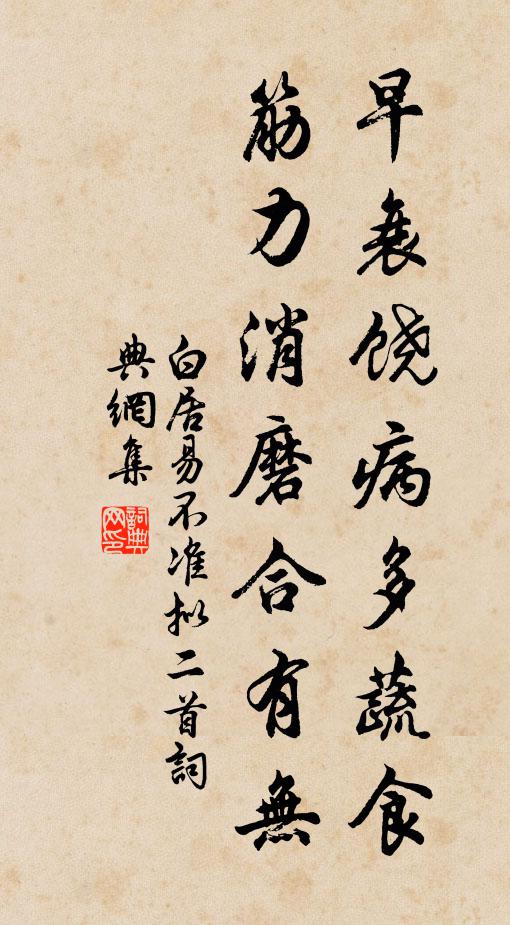 早衰饶病多蔬食
筋力消磨合有無
白居易不准拟二首詞
典網集
詞典
网印